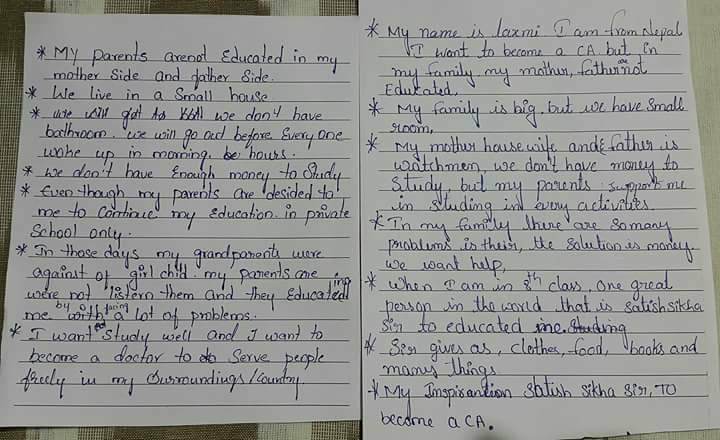 * My parents arenot Educated in my
mother Side and father Side.
* We live in a Small house
* we don't have
bathroom. we will go out before Every one
wake up in morning. hours.
* we don't have Enough money to Study
* Even though my parents are desided to
me to Continue my Education in private
School only.
* In those days my grandparents were
against of girl child. my parents are
were not listern them and they Educated
me by facing a lot of problems.
* I want Study well and I want to
become a doctor to Serve people
freely in my Surroundings/Country.
* My name is laxmi I am from Nepal
I want to become a CA. but in
my family my mother, father are not
Educated.
* My family is big. but we have Small
room,
* My mother house wife and father is
watchmen, we don't have money to
Study, but my parents support me
in studing in Every activities.
* In my family there are so many
problems is their, the solution is money.
we want help,
* when I am in 8th class, one great
person in the world that is Satish sikha
Sir to educated me.
* Sir gives as, clothes, food, books and
manus things
* My Inspirantion Satish Sikha Sir, To
become a CA.